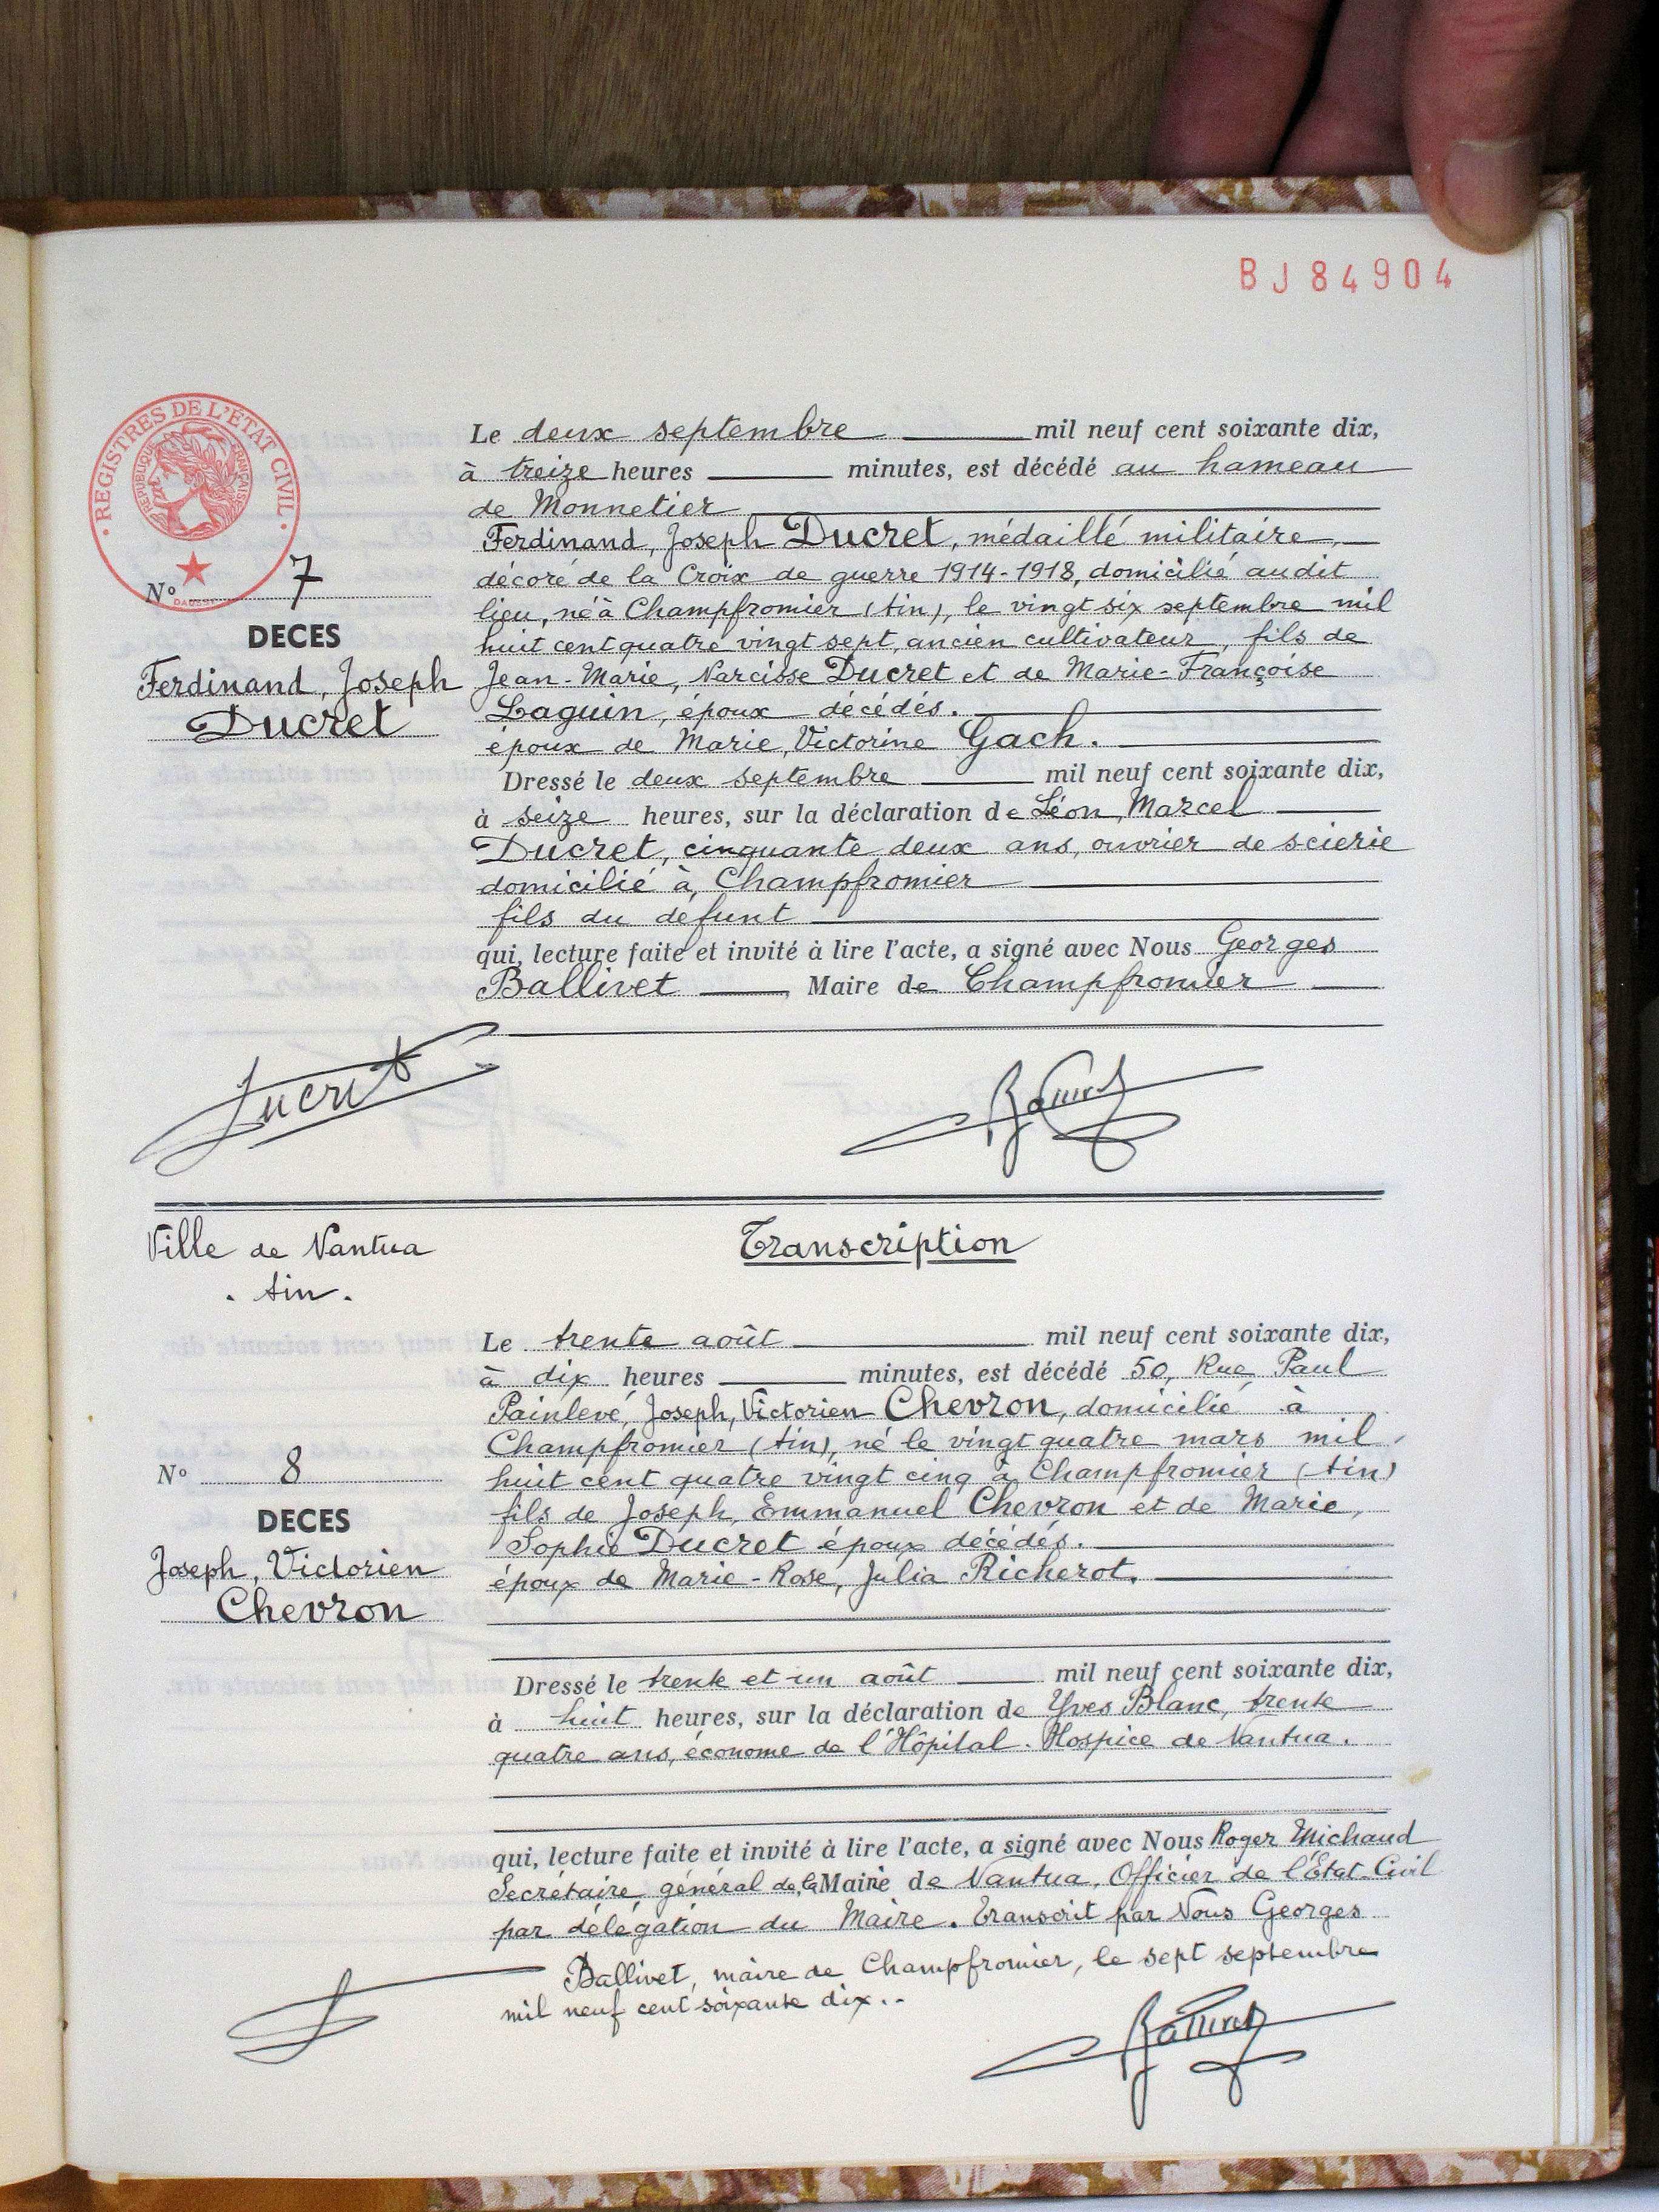 BJ84904
REGISTRES DE L'ÉTAT CIVIL
REPUBLIQUE FRANÇAISE
DAUSSY
Le deux septembre mil neuf cent soixante dix,
à treize heures minutes, est décédé au hameau
de Monnetier
Ferdinand, Joseph Ducret, médaillé militaire,
décoré de la Croix de guerre 1914-1918, domicilié audit
lieu, né à Champfromier (Ain), le vingt six septembre mil
huit cent quatre vingt sept, ancien cultivateur, fils de
Jean-Marie, Narcisse Ducret et de Marie-Françoise
Laguin, époux décédés.
époux de Marie, Victorine Gach.
Dressé le deux septembre mil neuf cent soixante dix,
à seize heures, sur la déclaration de Léon, Marcel
Ducret, cinquante deux ans, ouvrier de scierie
domicilié à Champfromier
fils du défunt
qui, lecture faite et invité à lire l'acte, a signé avec Nous Georges
Ballivet, Maire de Champfromier
N° 7
DECES
Ferdinand, Joseph
Ducret
Ducret
Ballivet
Ville de Nantua
. Ain.
Transcription
Le trente août mil neuf cent soixante dix,
à dix heures minutes, est décédé 50, Rue Paul
Painlevé, Joseph, Victorien Chevron, domicilié à
Champfromier (Ain), né le vingt quatre mars mil
huit cent quatre vingt cinq à Champfromier (Ain)
fils de Joseph, Emmanuel Chevron et de Marie,
Sophie Ducret époux décédés.
époux de Marie-Rose, Julia Richerot.
N° 8
DECES
Joseph, Victorien
Chevron
Dressé le trente et un août mil neuf cent soixante dix,
à huit heures, sur la déclaration de Yves Blanc, trente
quatre ans, économe de l'Hôpital-Hospice de Nantua.
qui, lecture faite et invité à lire l'acte, a signé avec Nous Roger Michaud
Secrétaire général de la Mairie de Nantua, Officier de l'État-Civil
par délégation du Maire. Transcrit par Nous Georges
Ballivet, maire de Champfromier, le sept septembre
mil neuf cent soixante dix..
Ballivet